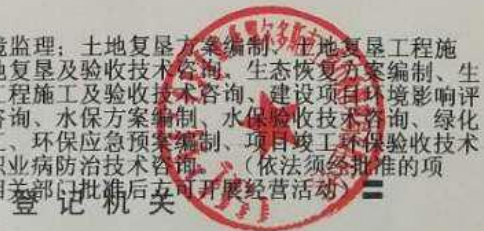 境监理；土地复垦方案编制、土地复垦工程施
地复垦及验收技术咨询、生态恢复方案编制、生
工程施工及验收技术咨询、建设项目环境影响评
咨询、水保方案编制、水保验收技术咨询、绿化
、环保应急预案编制、项目竣工环保验收技术
职业病防治技术咨询。（依法须经批准的项
相关部门批准后方可开展经营活动）
登记机关